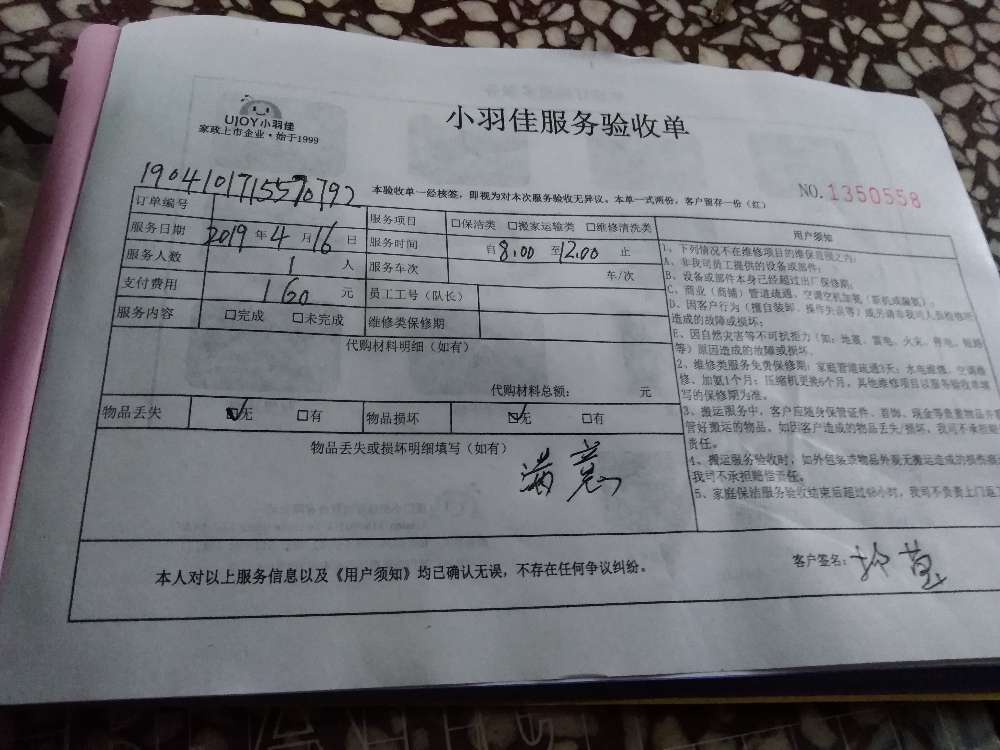 UJOY小羽佳
家政上市企业·始于1999
小羽佳服务验收单
本验收单一经核签，即视为对本次服务验收无异议。本单一式两份，客户留存一份（红）
NO.1350558
订单编号 1904101715570792
服务项目 □保洁类 □搬家运输类 □维修清洗类
服务日期 2019 年 4 月 16 日
服务时间 自 8:00 至 12:00 止
服务人数 1 人
服务车次 车/次
支付费用 160 元
员工工号（队长）
服务内容 □完成 □未完成
维修类保修期
代购材料明细（如有）
代购材料总额： 元
物品丢失 ☑无 □有
物品损坏 ☑无 □有
物品丢失或损坏明细填写（如有）
满意
用户须知
1、下列情况不在维修项目的维保范围之内：
A、非我司员工提供的设备或部件；
B、设备或部件本身已经超过出厂保修期；
C、商业（商铺）管道疏通、空调空机加氨（新机或漏氨）；
D、因客户行为（擅自装卸、操作失误等）或另请非我司人员检修所
造成的故障或损坏；
E、因自然灾害等不可抗拒力（如：地震、雷电、火灾、停电、短路
等）原因造成的故障或损坏。
2、维修类服务免费保修期：家庭管道疏通3天；水电维修、空调维
修、加氨1个月；压缩机更换6个月，其他维修项目以服务验收单填
写的保修期为准。
3、搬运服务中，客户应随身保管证件、首饰、现金等贵重物品并
管好搬运的物品。如因客户造成的物品丢失/损坏，我司不承担赔
责任。
4、搬运服务验收时，如外包装或物品外观无搬运造成的损伤痕
我司不承担赔偿责任。
5、家庭保洁服务验收结束后超过48小时，我司不负责上门返工
本人对以上服务信息以及《用户须知》均已确认无误，不存在任何争议纠纷。
客户签名：